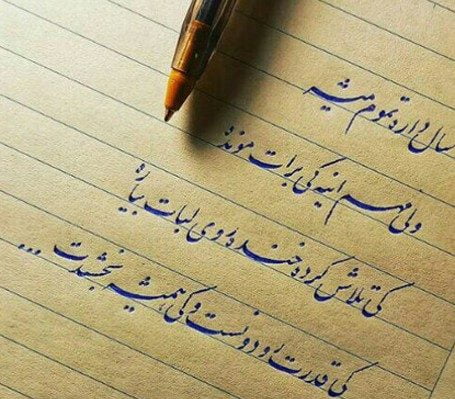 سال داره تموم میشه
ولی مهم اینه کی برات مونده
کی تلاش کرده خنده روی لبات بیاد
کی قدرت رو دونست و کی همیشه بخشیدت ...